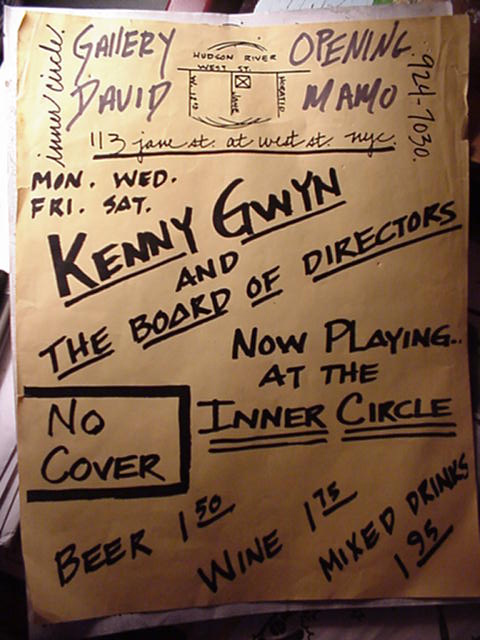 inner circle.
GAllERY OPENING
DAVID MAMO
HUDSON RIVER
WEST ST.
JANE
HORATIO
924-7030.
113 jane st. at west st. nyc.
MON. WED.
FRI. SAT.
KENNY GWYN
AND
THE BOARD OF DIRECTORS
NOW PLAYING..
AT THE
INNER CIRCLE
NO
COVER
BEER 1 50
WINE 1 75
MIXED DRINKS
1 95